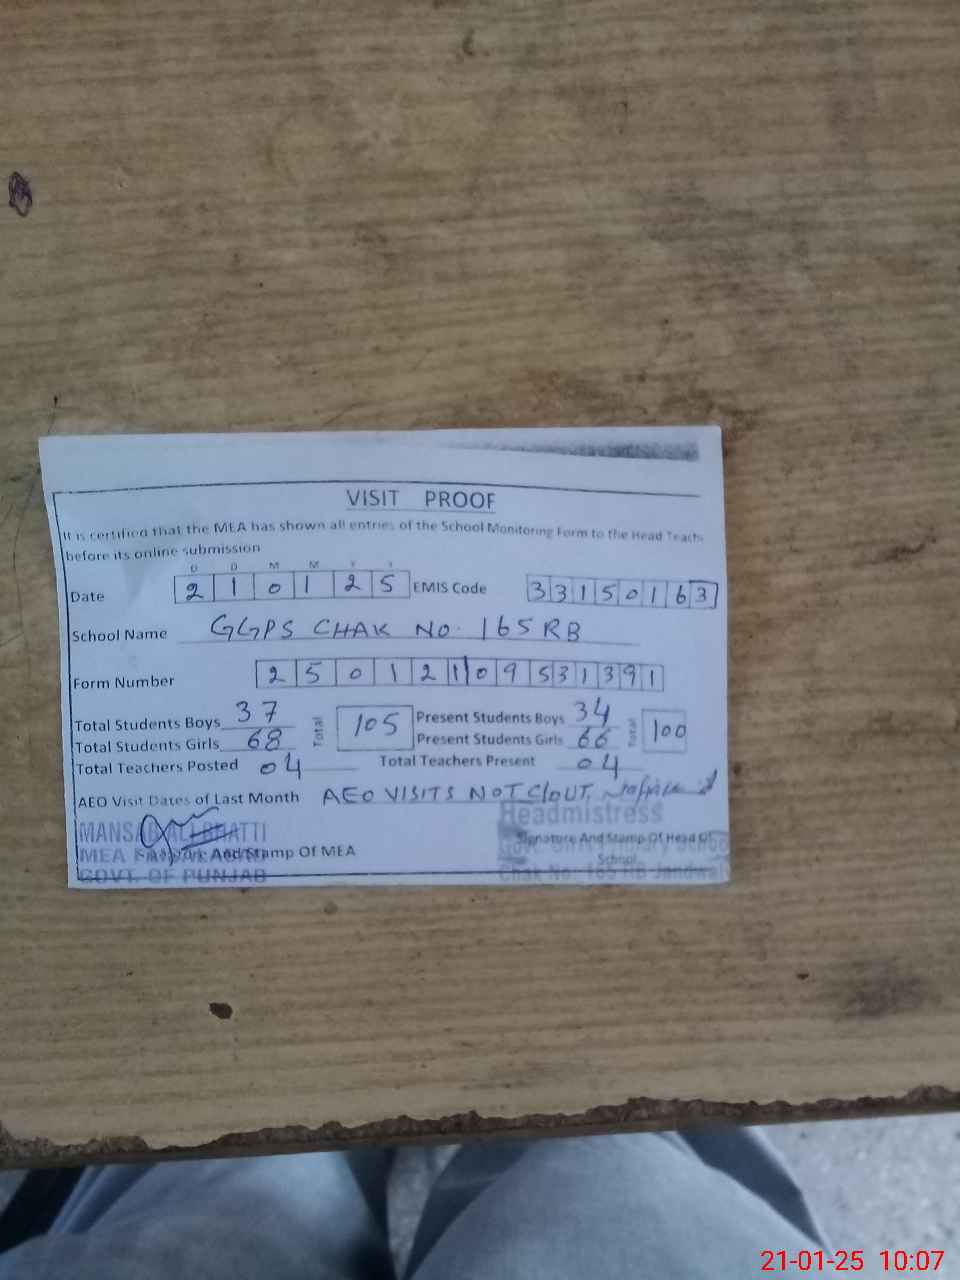 VISIT PROOF
It is certified that the MEA has shown all entries of the School Monitoring Form to the Head Teach
before its online submission
D D M M Y Y
Date 2 1 0 1 2 5 EMIS Code 3 3 1 5 0 1 6 3
School Name GGPS CHAK NO. 165 RB
Form Number 2 5 0 1 2 1 0 9 5 3 1 3 9 1
Total Students Boys 37 Total 105 Present Students Boys 34 Total 100
Total Students Girls 68 Present Students Girls 66
Total Teachers Posted 04 Total Teachers Present 04
AEO Visit Dates of Last Month AEO VISITS NOT C/OUT
MANSAB ALI BHATTI Headmistress
MEA And Stamp Of MEA Signature And Stamp Of Head Of
School
GOVT. OF PUNJAB Chak No: 165 RB Jandwali
21-01-25 10:07